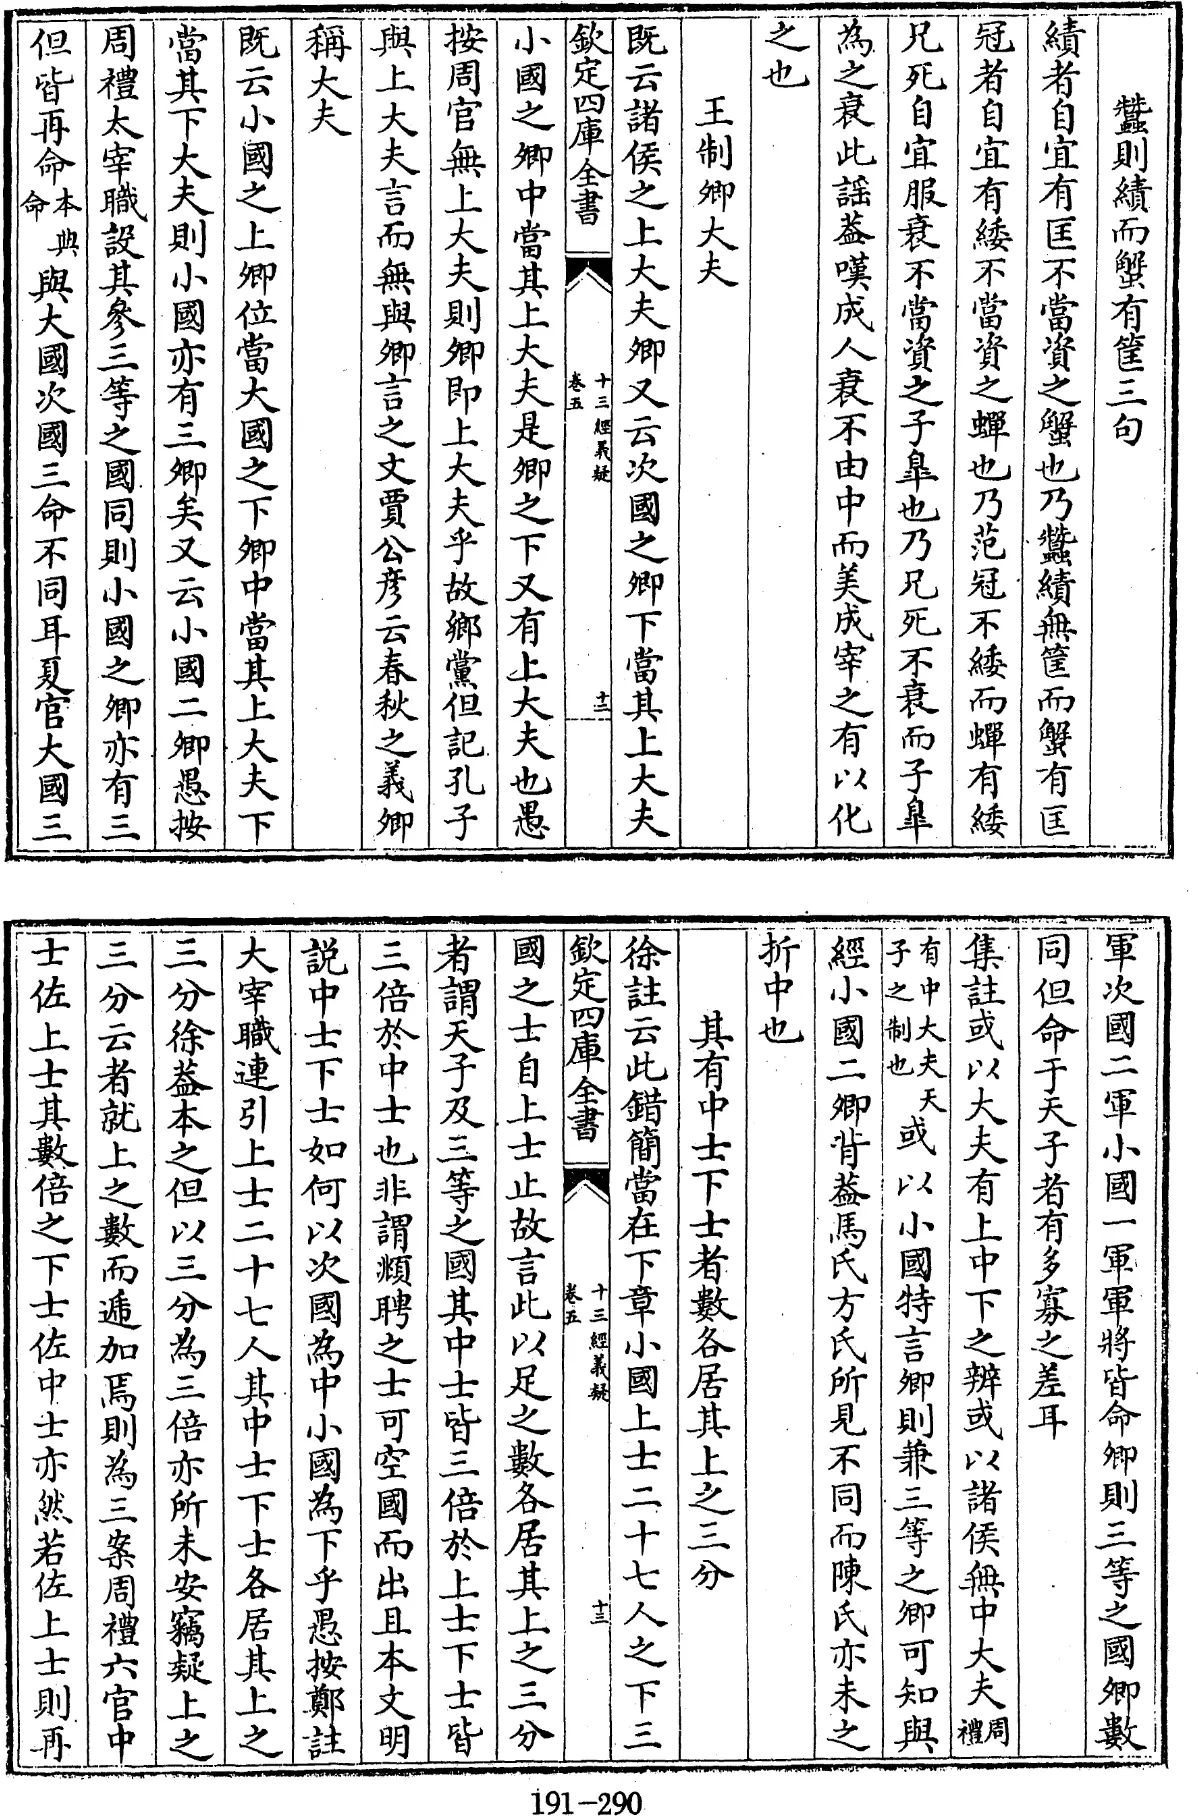 蠶則績而蟹有筐三句
績者自宜有匡不當資之蟹也乃蠶績無筐而蟹有匡
冠者自宜有緌不當資之蟬也乃范冠不緌而蟬有緌
兄死自宜服衰不當資之子臯也乃兄死不衰而子臯
為之衰此謡葢嘆成人衰不由中而美成宰之有以化
之也
王制卿大夫
既云諸侯之上大夫卿又云次國之卿下當其上大夫
欽定四庫全書
十三經義疑
卷五
十二
小國之卿中當其上大夫是卿之下又有上大夫也愚
按周官無上大夫則卿即上大夫乎故鄉黨但記孔子
與上大夫言而無與卿言之文賈公彦云春秋之義卿
稱大夫
既云小國之上卿位當大國之下卿中當其上大夫下
當其下大夫則小國亦有三卿矣又云小國二卿愚按
周禮太宰職設其參三等之國同則小國之卿亦有三
但皆再命本典命與大國次國三命不同耳夏官大國三
軍次國二軍小國一軍軍將皆命卿則三等之國卿數
同但命于天子者有多寡之差耳
集註或以大夫有上中下之辨或以諸侯無中大夫周禮
有中大夫天子之制也或以小國特言卿則兼三等之卿可知與
經小國二卿背葢馬氏方氏所見不同而陳氏亦未之
折中也
其有中士下士者數各居其上之三分
徐註云此錯簡當在下章小國上士二十七人之下三
欽定四庫全書
十三經義疑
卷五
十三
國之士自上士止故言此以足之數各居其上之三分
者謂天子及三等之國其中士皆三倍於上士下士皆
三倍於中士也非謂頫聘之士可空國而出且本文明
説中士下士如何以次國為中小國為下乎愚按鄭註
大宰職連引上士二十七人其中士下士各居其上之
三分徐葢本之但以三分為三倍亦所未安竊疑上之
三分云者就上之數而遞加焉則為三案周禮六官中
士佐上士其數倍之下士佐中士亦然若佐上士則再
191-290